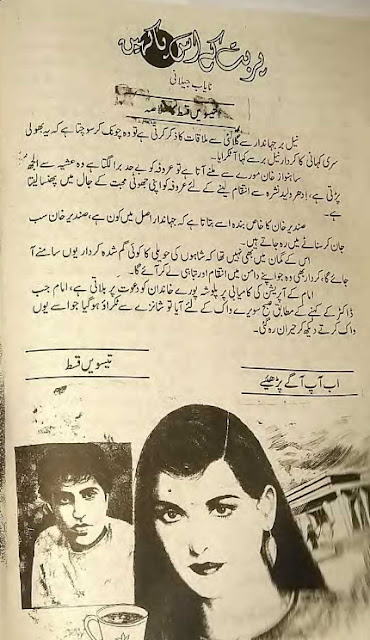 پربت کے اس پار کہیں
نایاب جیلانی
انتیسویں قسط کا خلاصہ
نیل بر جہاندار سے گلائی سے ملاقات کا ذکر کرتی ہے تو وہ چونک کر سوچتا ہے کہ یہ بھولی
سری کہانی کا کردار نیل بر سے کہاں ٹکرایا۔
ساہنواز خان مورے سے ملنے آتا ہے تو عروفہ کو بے حد برا لگتا ہے وہ عشیہ سے الجھ
پڑتی ہے، ادھر ولید نشرہ سے انتقام لینے کے لئے عروفہ کو اپنی جھوٹی محبت کے جال میں پھنسا لیتا
ہے۔
صندیر خان کا خاص بندہ اسے بتاتا ہے کہ جہاندار اصل میں کون ہے، صندیر خان سب
جان کر سناٹے میں رہ جاتے ہیں۔
اس کے گمان میں بھی نہیں تھا کہ شاہوں کی حویلی کا کوئی گم شدہ کردار یوں سامنے آ
جائے گا، کردار بھی وہ جو اپنے دامن میں انتقام اور تباہی لے کر آئے گا۔
امام کے آپریشن کی کامیابی پر پلوشہ پورے خاندان کو دعوت پر بلاتی ہے، امام جب
ڈاکٹر کے کہنے کے مطابق صبح سویرے واک کے لئے آیا تو شانزے سے ٹکراؤ ہو گیا جو اسے یوں
واک کرتے دیکھ کر حیران رہ گئی۔
تیسویں قسط
اب آپ آگے پڑھیئے